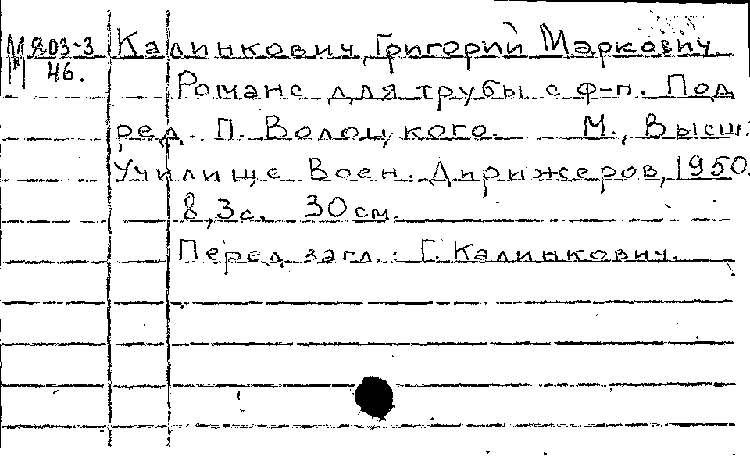 М 803-3 Калинкович, Григорий Маркович.
46.
Романс для трубы с ф-п. Под
ред. П. Волоцкого. М., Высш.
Училище Воен. Дирижеров, 1950.
8, 3 с. 30 см.
Перед загл.: Г. Калинкович.